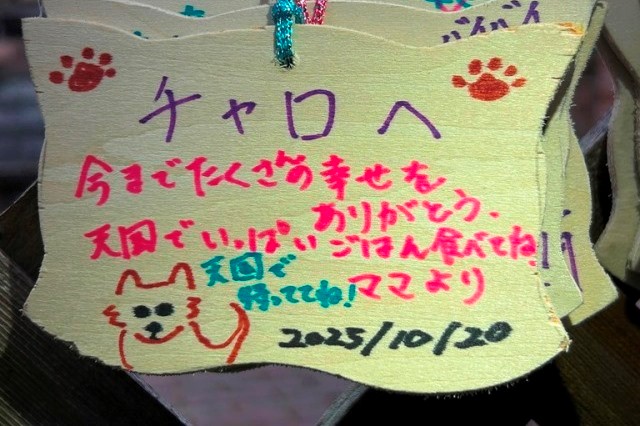 バイバイ
チャロへ
今までたくさんの幸せを
ありがとう、
天国でいっぱいごはん食べてね
天国で
待っててね!
ママより
2025/10/20